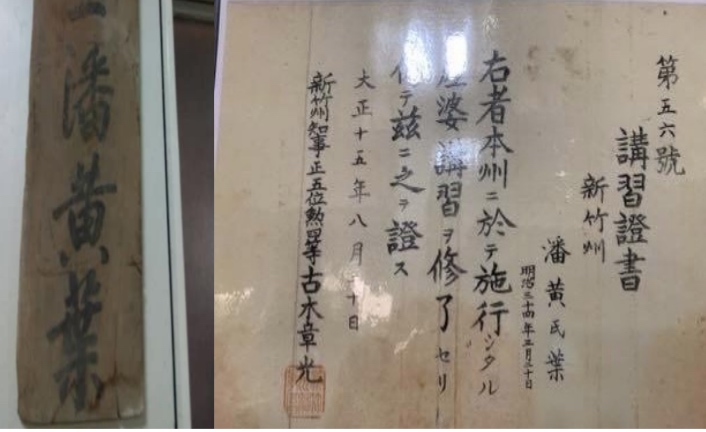 潘黃葉
第五六號
講習證書
新竹州
潘黃氏葉
明治三十四年三月二十日
右者本州ニ於テ施行シタル
産婆講習ヲ修了セリ
依テ茲ニ之ヲ證ス
大正十五年八月十日
新竹州知事正五位勳四等古木章光